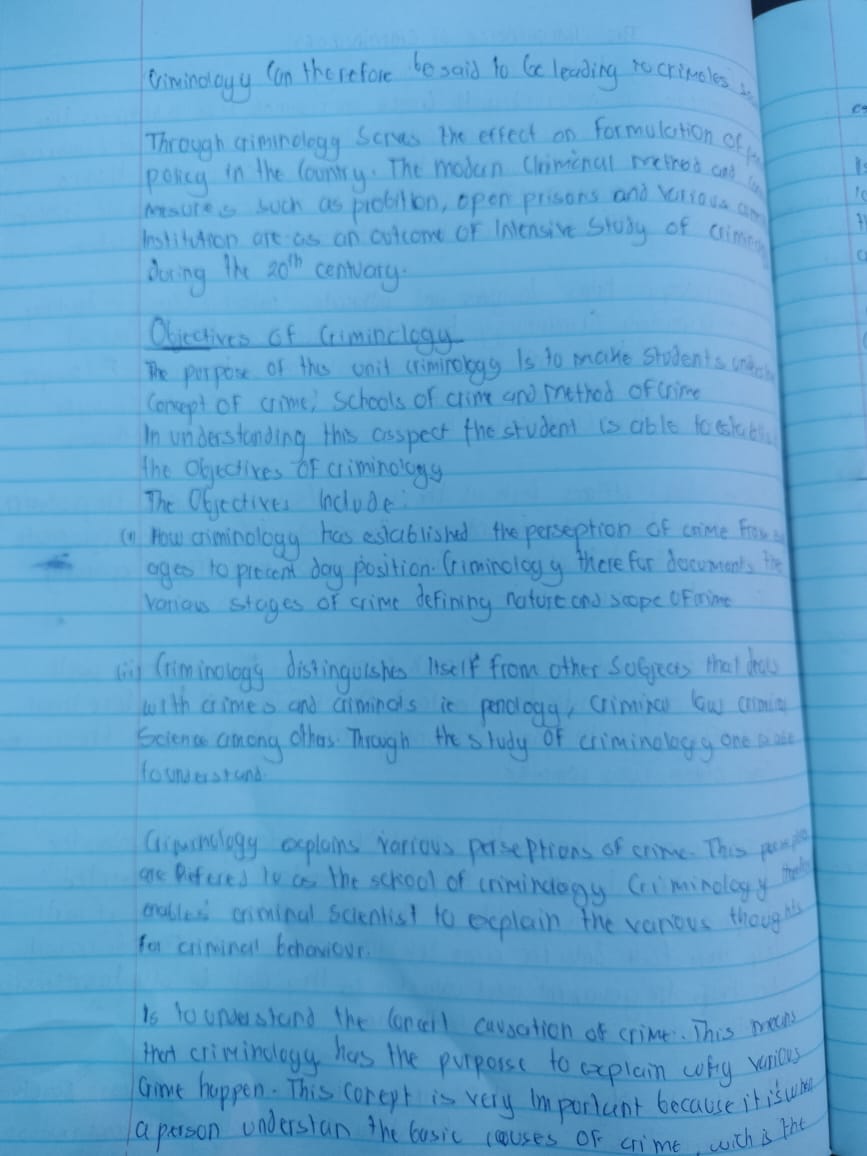 Criminology Can therefore be said to be leading to crimeles
Through criminology Serves the effect on formulation of
policy in the Country. The modern Criminal method and
mesures such as probition, open prisons and various
Institution are as an outcome of Intensive Study of
during the 20th centuory.
Objectives of Criminology
The porpose of this unit criminology Is to make Students
Concept of crime, Schools of crime and Method of Crime
In understanding this asspect the student is able to
the Objectives of criminology
The Objectives Include:
(i) How criminology has established the perseption of crime From
ages to precent day position. Criminology there for documents the
Various stages of crime defining nature and scope of crime
(ii) Criminology distinguishes Itself from other Sobjects that deals
with crimes and criminals ie penology, Criminal law
Science among others. Through the study of criminology one
to understand.
Criminology explains various perseptions of crime. This
are Refered to as the school of criminology Criminology
enables criminal Scientist to explain the various thoughts
for criminal behaviour.
Is to understand the causation of crime. This means
that criminology has the purposse to explain why various
Crime happen. This conept is very Important because it is when
a person understan the basic causes of crime, with is the